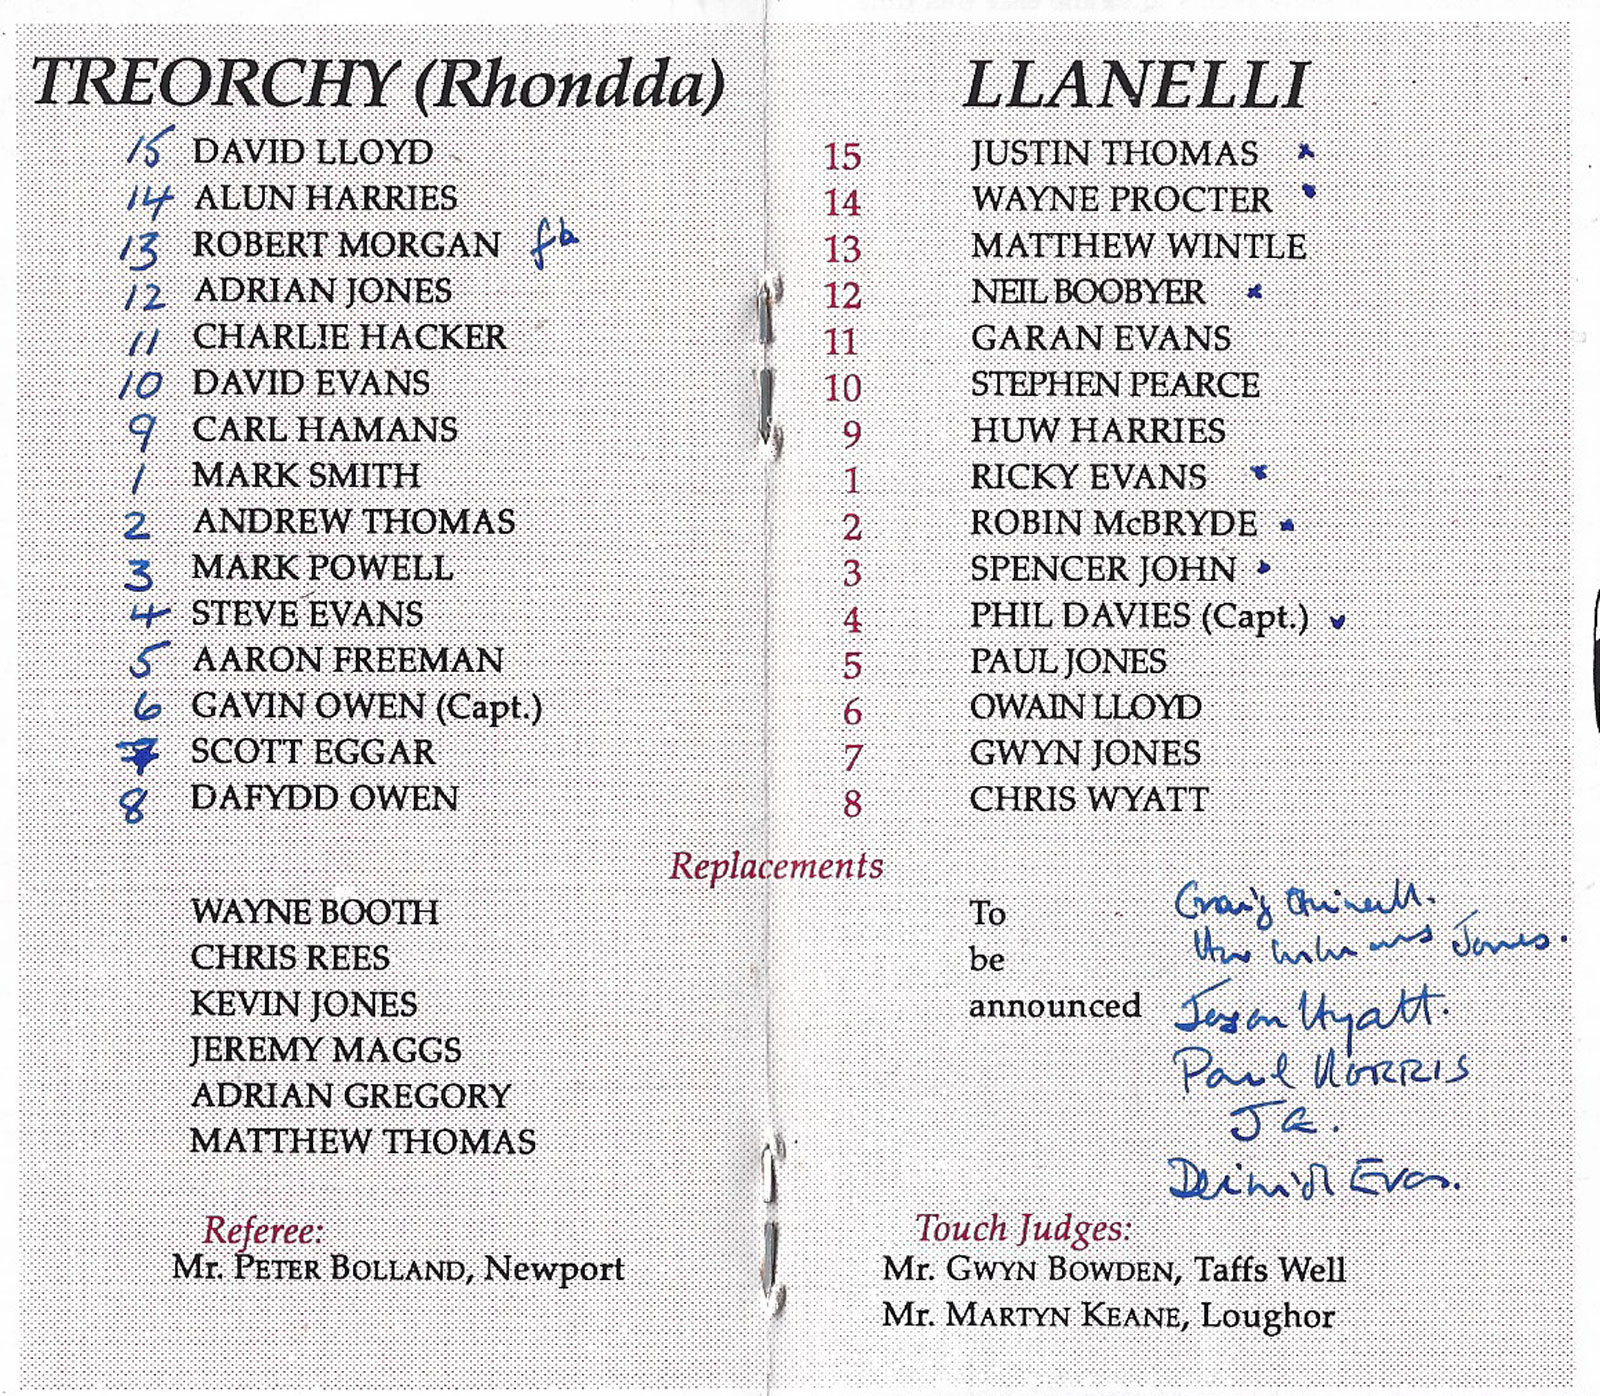 TREORCHY (Rhondda)
15 DAVID LLOYD
14 ALUN HARRIES
13 ROBERT MORGAN fb
12 ADRIAN JONES
11 CHARLIE HACKER
10 DAVID EVANS
9 CARL HAMANS
1 MARK SMITH
2 ANDREW THOMAS
3 MARK POWELL
4 STEVE EVANS
5 AARON FREEMAN
6 GAVIN OWEN (Capt.)
7 SCOTT EGGAR
8 DAFYDD OWEN
LLANELLI
15 JUSTIN THOMAS
14 WAYNE PROCTER
13 MATTHEW WINTLE
12 NEIL BOOBYER
11 GARAN EVANS
10 STEPHEN PEARCE
9 HUW HARRIES
1 RICKY EVANS
2 ROBIN McBRYDE
3 SPENCER JOHN
4 PHIL DAVIES (Capt.)
5 PAUL JONES
6 OWAIN LLOYD
7 GWYN JONES
8 CHRIS WYATT
Replacements
WAYNE BOOTH
CHRIS REES
KEVIN JONES
JEREMY MAGGS
ADRIAN GREGORY
MATTHEW THOMAS
To
be
announced
Craig Quinnell.
Huw Williams Jones.
Jason Hyatt.
Paul MORRIS
Evans.
Referee:
Mr. PETER BOLLAND, Newport
Touch Judges:
Mr. GWYN BOWDEN, Taffs Well
Mr. MARTYN KEANE, Loughor